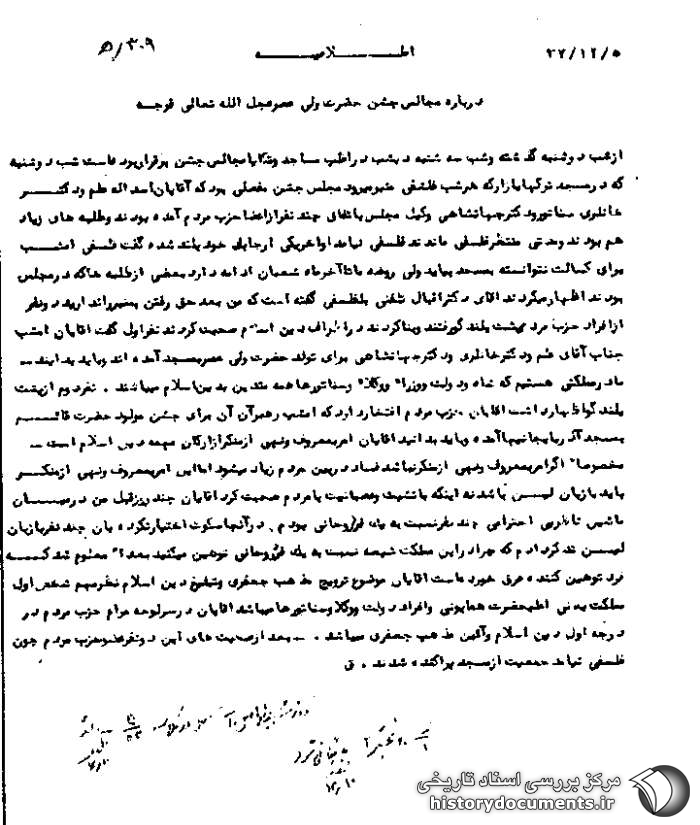 ۳۰۹/ه اطلاعیه ۳۷/۱۲/۵
درباره مجالس جشن حضرت ولی عصر عجل الله تعالی فرجه
از شب دوشنبه گذشته وشب سه شنبه دیشب در اغلب مساجد وتکایا مجالس جشن برقرار بود شب دوشنبه
که در مسجد ترکها بازار که هر شب فلسفی منبر میرود مجلس جشن مفصلی بود که آقایان اسدالله علم ودکتر
خانلری سناتور ودکتر جهانشاهی وکیل مجلس باتفاق چند نفر از اعضا حزب مردم آمده بودند وطلبه های زیاد
هم بودند ومدتی منتظر فلسفی ماندند فلسفی نیامد اواخر یکی از جای خود بلند شده گفت فلسفی امشب
برای کسالت نتوانسته بمسجد بیاید ولی روضه ما تا آخر ماه شعبان ادامه دارد بعضی از طلبه ها که در مجلس
بودند اظهار میکردند آقای دکتر اقبال تلفنی بفلسفی گفته است که من بعد حق رفتن بمنبر را ندارید دو نفر
از افراد حزب مردم پشت بلند گو رفتند وبنا کردند در اطراف دین اسلام صحبت کردند نفر اول گفت آقایان امشب
جناب آقای علم ودکتر خانلری ودکتر جهانشاهی برای تولد حضرت ولی عصر بمسجد آمده اند وباید بدانند
ما در مملکتی هستیم که شاه ودولت ووزراء ووکلاء وسناتورها همه متدین بدین اسلام میباشند . نفر دوم از پشت
بلند گو اظهار داشت آقایان حزب مردم افتخار دارد که امشب رهبر آن برای جشن مولود حضرت قائم
بمسجد آذربایجانیها آمده وباید بدانید آقایان امر بمعروف ونهی از منکر از ارکان مهمه دین اسلام است
مخصوصا" اگر امر بمعروف ونهی از منکر نباشد فساد در بین مردم زیاد میشود اما این امر بمعروف ونهی از منکر
باید با زبان لین باشد نه اینکه با تشدد وعصبانیت با مردم صحبت کرد آقایان چند روز قبل من در
ماشین ناظر بی احترامی چند نفر نسبت به یک نفر روحانی بودم . در آنجا سکوت اختیار نکرده بان چند نفر با زبان
لین تذکر دادم که چرا در این مملکت شیعه نسبت به یک نفر روحانی توهین میکنید بعدا" معلوم شد که
فرد توهین کننده عرق خورده است آقایان موضوع ترویج مذهب جعفری وتبلیغ دین اسلام نظر مهم شخص اول
مملکت یعنی اعلیحضرت همایونی وافراد دولت ووکلا وسناتورها میباشد آقایان در سرلوحه مرام حزب مردم در
درجه اول دین اسلام وآئین مذهب جعفری میباشد . - بعد از صحبت های این دو نفر عضو حزب مردم چون
فلسفی نیامد جمعیت از مسجد پراکنده شدند . ق
مرکز بررسی اسناد تاریخی
historydocuments.ir